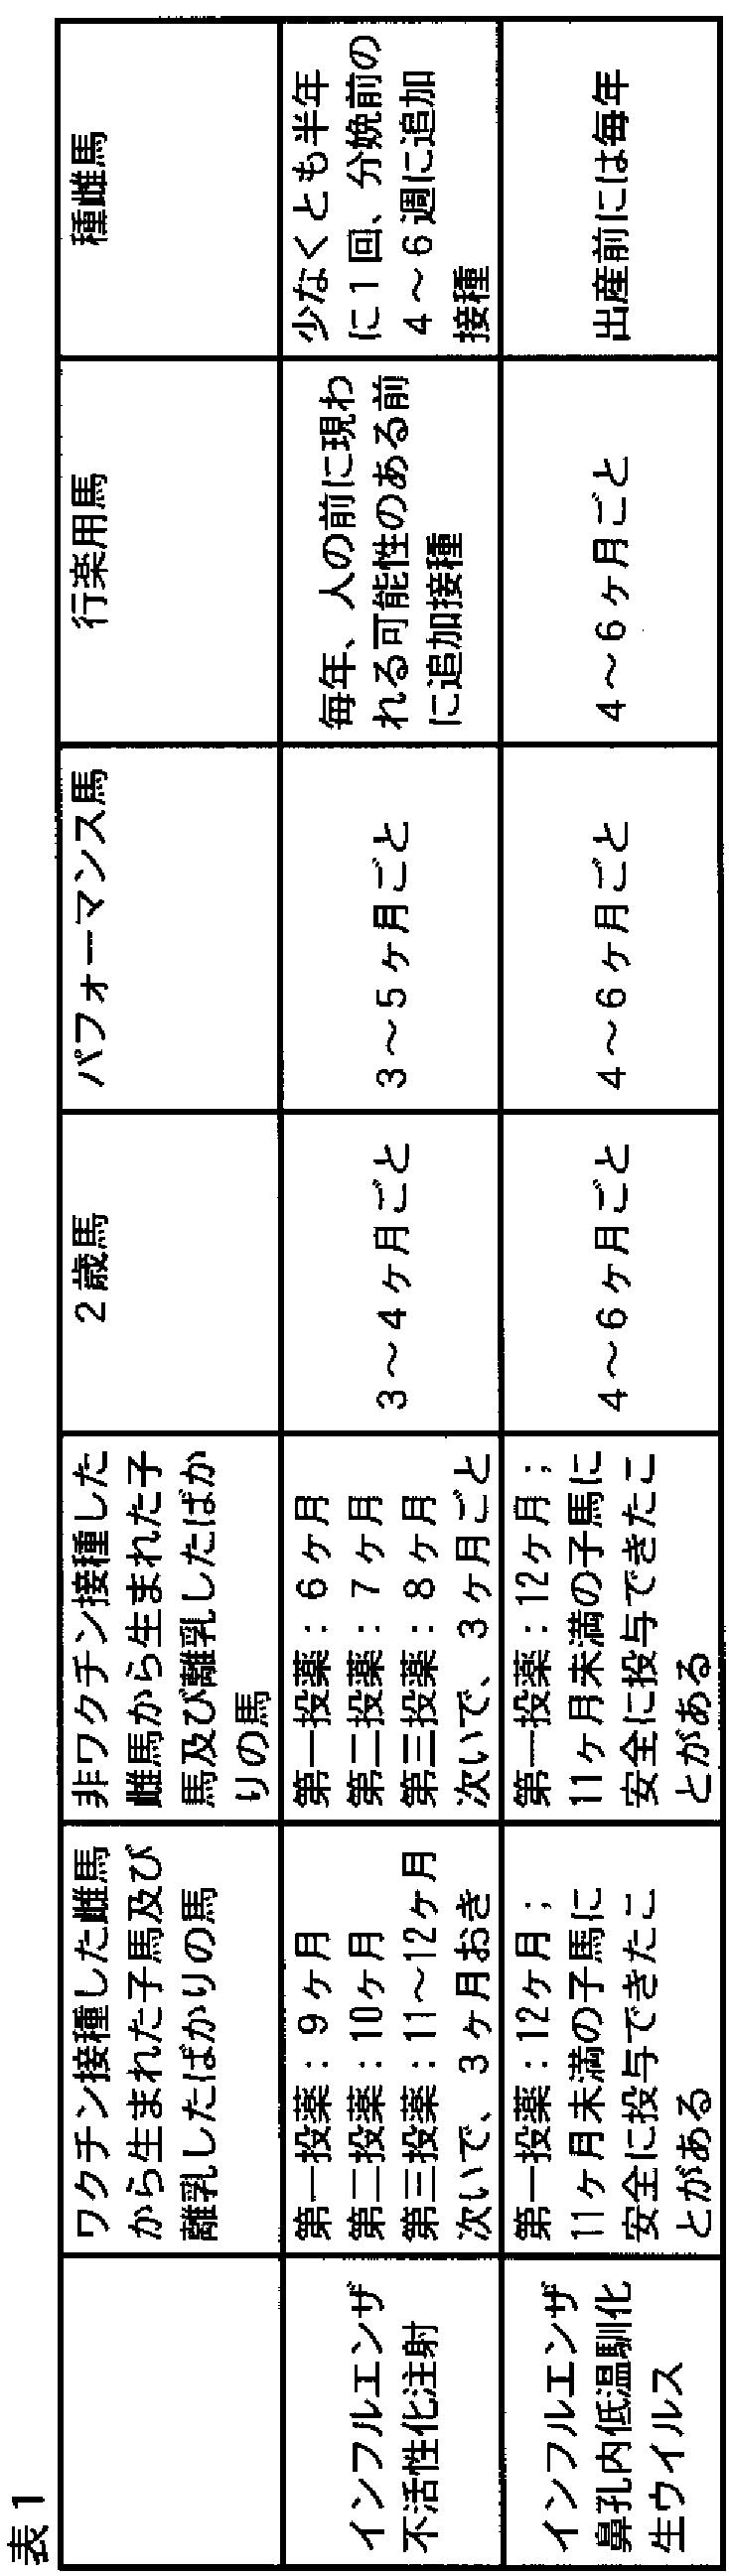 表1
ワクチン接種した雌馬
から生まれた子馬及び
離乳したばかりの馬
非ワクチン接種した
雌馬から生まれた子
馬及び離乳したばか
りの馬
2歳馬
パフォーマンス馬
行楽用馬
種雌馬
インフルエンザ
不活性化注射
第一投薬：9ヶ月
第二投薬：10ヶ月
第三投薬：11～12ヶ月
次いで、3ヶ月おき
第一投薬：6ヶ月
第二投薬：7ヶ月
第三投薬：8ヶ月
次いで、3ヶ月ごと
3～4ヶ月ごと
3～5ヶ月ごと
毎年、人の前に現わ
れる可能性のある前
に追加接種
少なくとも半年
に1回、分娩前の
4～6週に追加
接種
インフルエンザ
鼻孔内低温馴化
生ウイルス
第一投薬：12ヶ月；
11ヶ月未満の子馬に
安全に投与できたこ
とがある
第一投薬：12ヶ月；
11ヶ月未満の子馬に
安全に投与できたこ
とがある
4～6ヶ月ごと
4～6ヶ月ごと
4～6ヶ月ごと
出産前には毎年